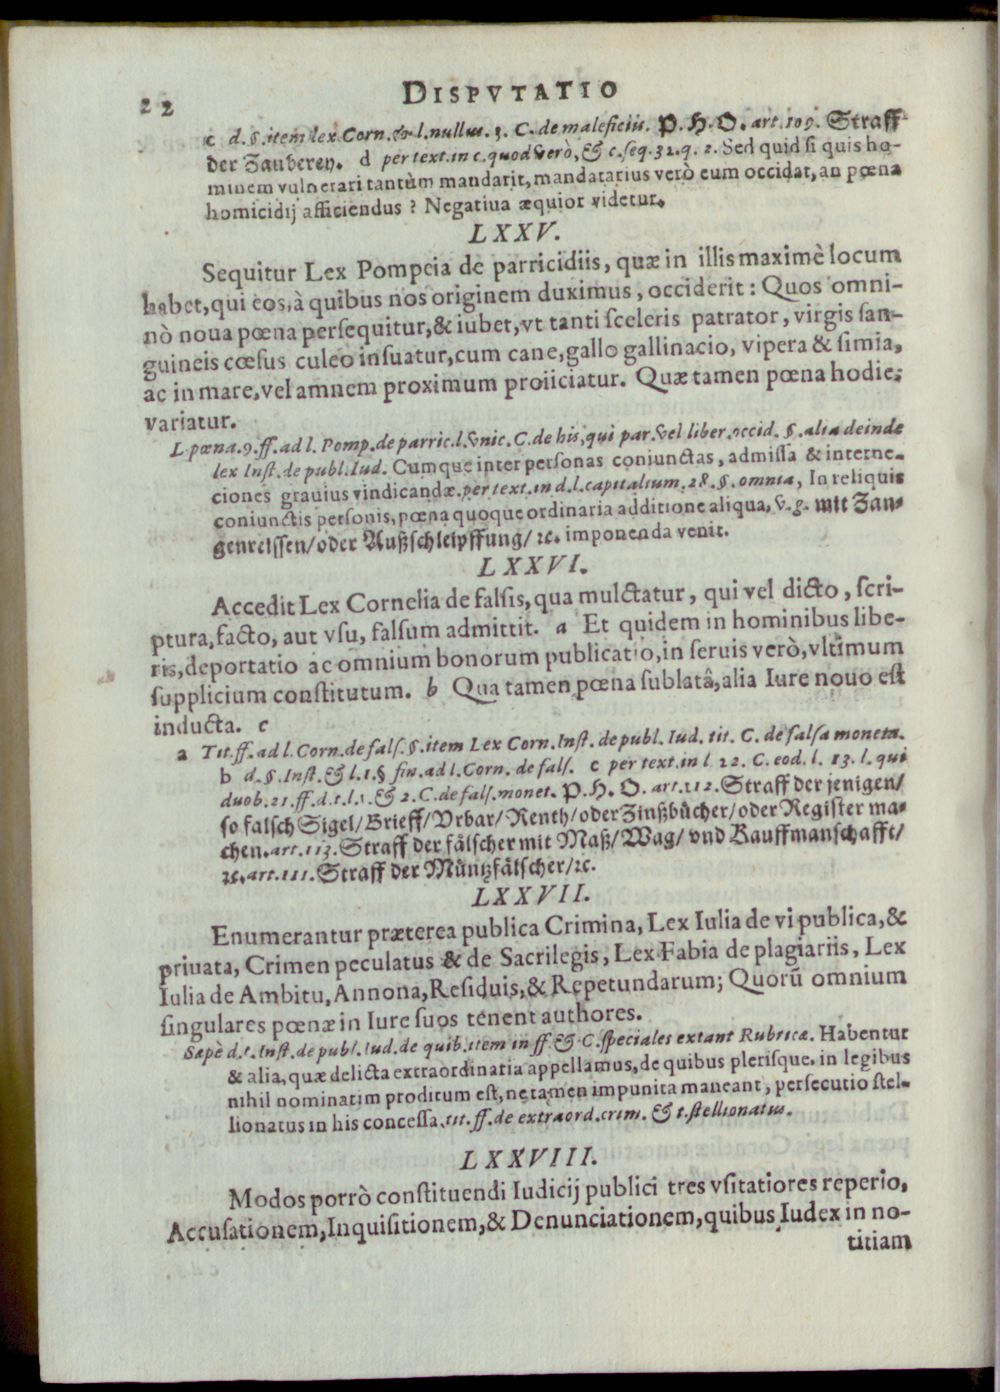 22 DISPVTATIO
c d. §. item lex Corn. & l. nullus. 3. C. de maleficiis. P. H. O. art. 109. Straff
der Zauberey. d per text. in c. quod verò, & c. seq. 32. q. 2. Sed quid si quis ho-
minem vulnerari tantùm mandarit, mandatarius verò eum occidat, an pœna
homicidij afficiendus? Negatiua æquior videtur.
LXXV.
Sequitur Lex Pompeia de parricidiis, quæ in illis maximè locum
habet, qui eos, à quibus nos originem duximus, occiderit: Quos omni-
nò noua pœna persequitur, & iubet, vt tanti sceleris patrator, virgis san-
guineis cœsus culeo insuatur, cum cane, gallo gallinacio, vipera & simia,
ac in mare, vel amnem proximum proiiciatur. Quæ tamen pœna hodie
variatur.
L. pœna. 9. ff. ad l. Pomp. de parric. l. vnic. C. de his, qui par. vel liber. occid. §. alia deinde
lex Inst. de publ. Iud. Cumque inter personas coniunctas, admissa & interne-
ciones grauius vindicandæ. per text. in d. l. capitalium. 28. §. omnia, In reliquis
coniunctis personis, pœna quoque ordinaria additione aliqua, v. g. mit Zan-
genreissen/ oder Außschleipffung/ ꝛc. imponenda venit.
LXXVI.
Accedit Lex Cornelia de falsis, qua mulctatur, qui vel dicto, scri-
ptura, facto, aut vsu, falsum admittit. a Et quidem in hominibus libe-
ris, deportatio ac omnium bonorum publicatio, in seruis verò, vltimum
supplicium constitutum. b Qua tamen pœna sublatâ, alia Iure nouo est
inducta. c
a Tit. ff. ad l. Corn. de fals. §. item Lex Corn. Inst. de publ. Iud. tit. C. de falsa moneta.
b d. §. Inst. & l. 1. § fin. ad l. Corn. de fals. c per text. in l. 22. C. eod. l. 13. l. qui
duob. 21. ff. d. t. l. 1. & 2. C. de fals. monet. P. H. O. art. 112. Straff der jenigen/
so falsch Sigel/ Brieff/ Vrbar/ Renth/ oder Zinßbücher/ oder Register ma-
chen. art. 113. Straff der fälscher mit Maß/ Wag/ vnd Kauffmanschafft/
ꝛc. art. 111. Straff der Müntzfälscher/ ꝛc.
LXXVII.
Enumerantur præterea publica Crimina, Lex Iulia de vi publica, &
priuata, Crimen peculatus & de Sacrilegis, Lex Fabia de plagiariis, Lex
Iulia de Ambitu, Annona, Residuis, & Repetundarum; Quorū omnium
singulares pœnæ in Iure suos tenent authores.
Sæpè d. t. Inst. de publ. Iud. de quib. item in ff. & C. speciales extant Rubricæ. Habentur
& alia, quæ delicta extraordinatia appellamus, de quibus plerisque in legibus
nihil nominatim proditum est, ne tamen impunita maneant, persecutio stel-
lionatus in his concessa. tit. ff. de extraord. crim. & t. stellionatus.
LXXVIII.
Modos porrò constituendi Iudicij publici tres vsitatiores reperio,
Accusationem, Inquisitionem, & Denunciationem, quibus Iudex in no-
titiam